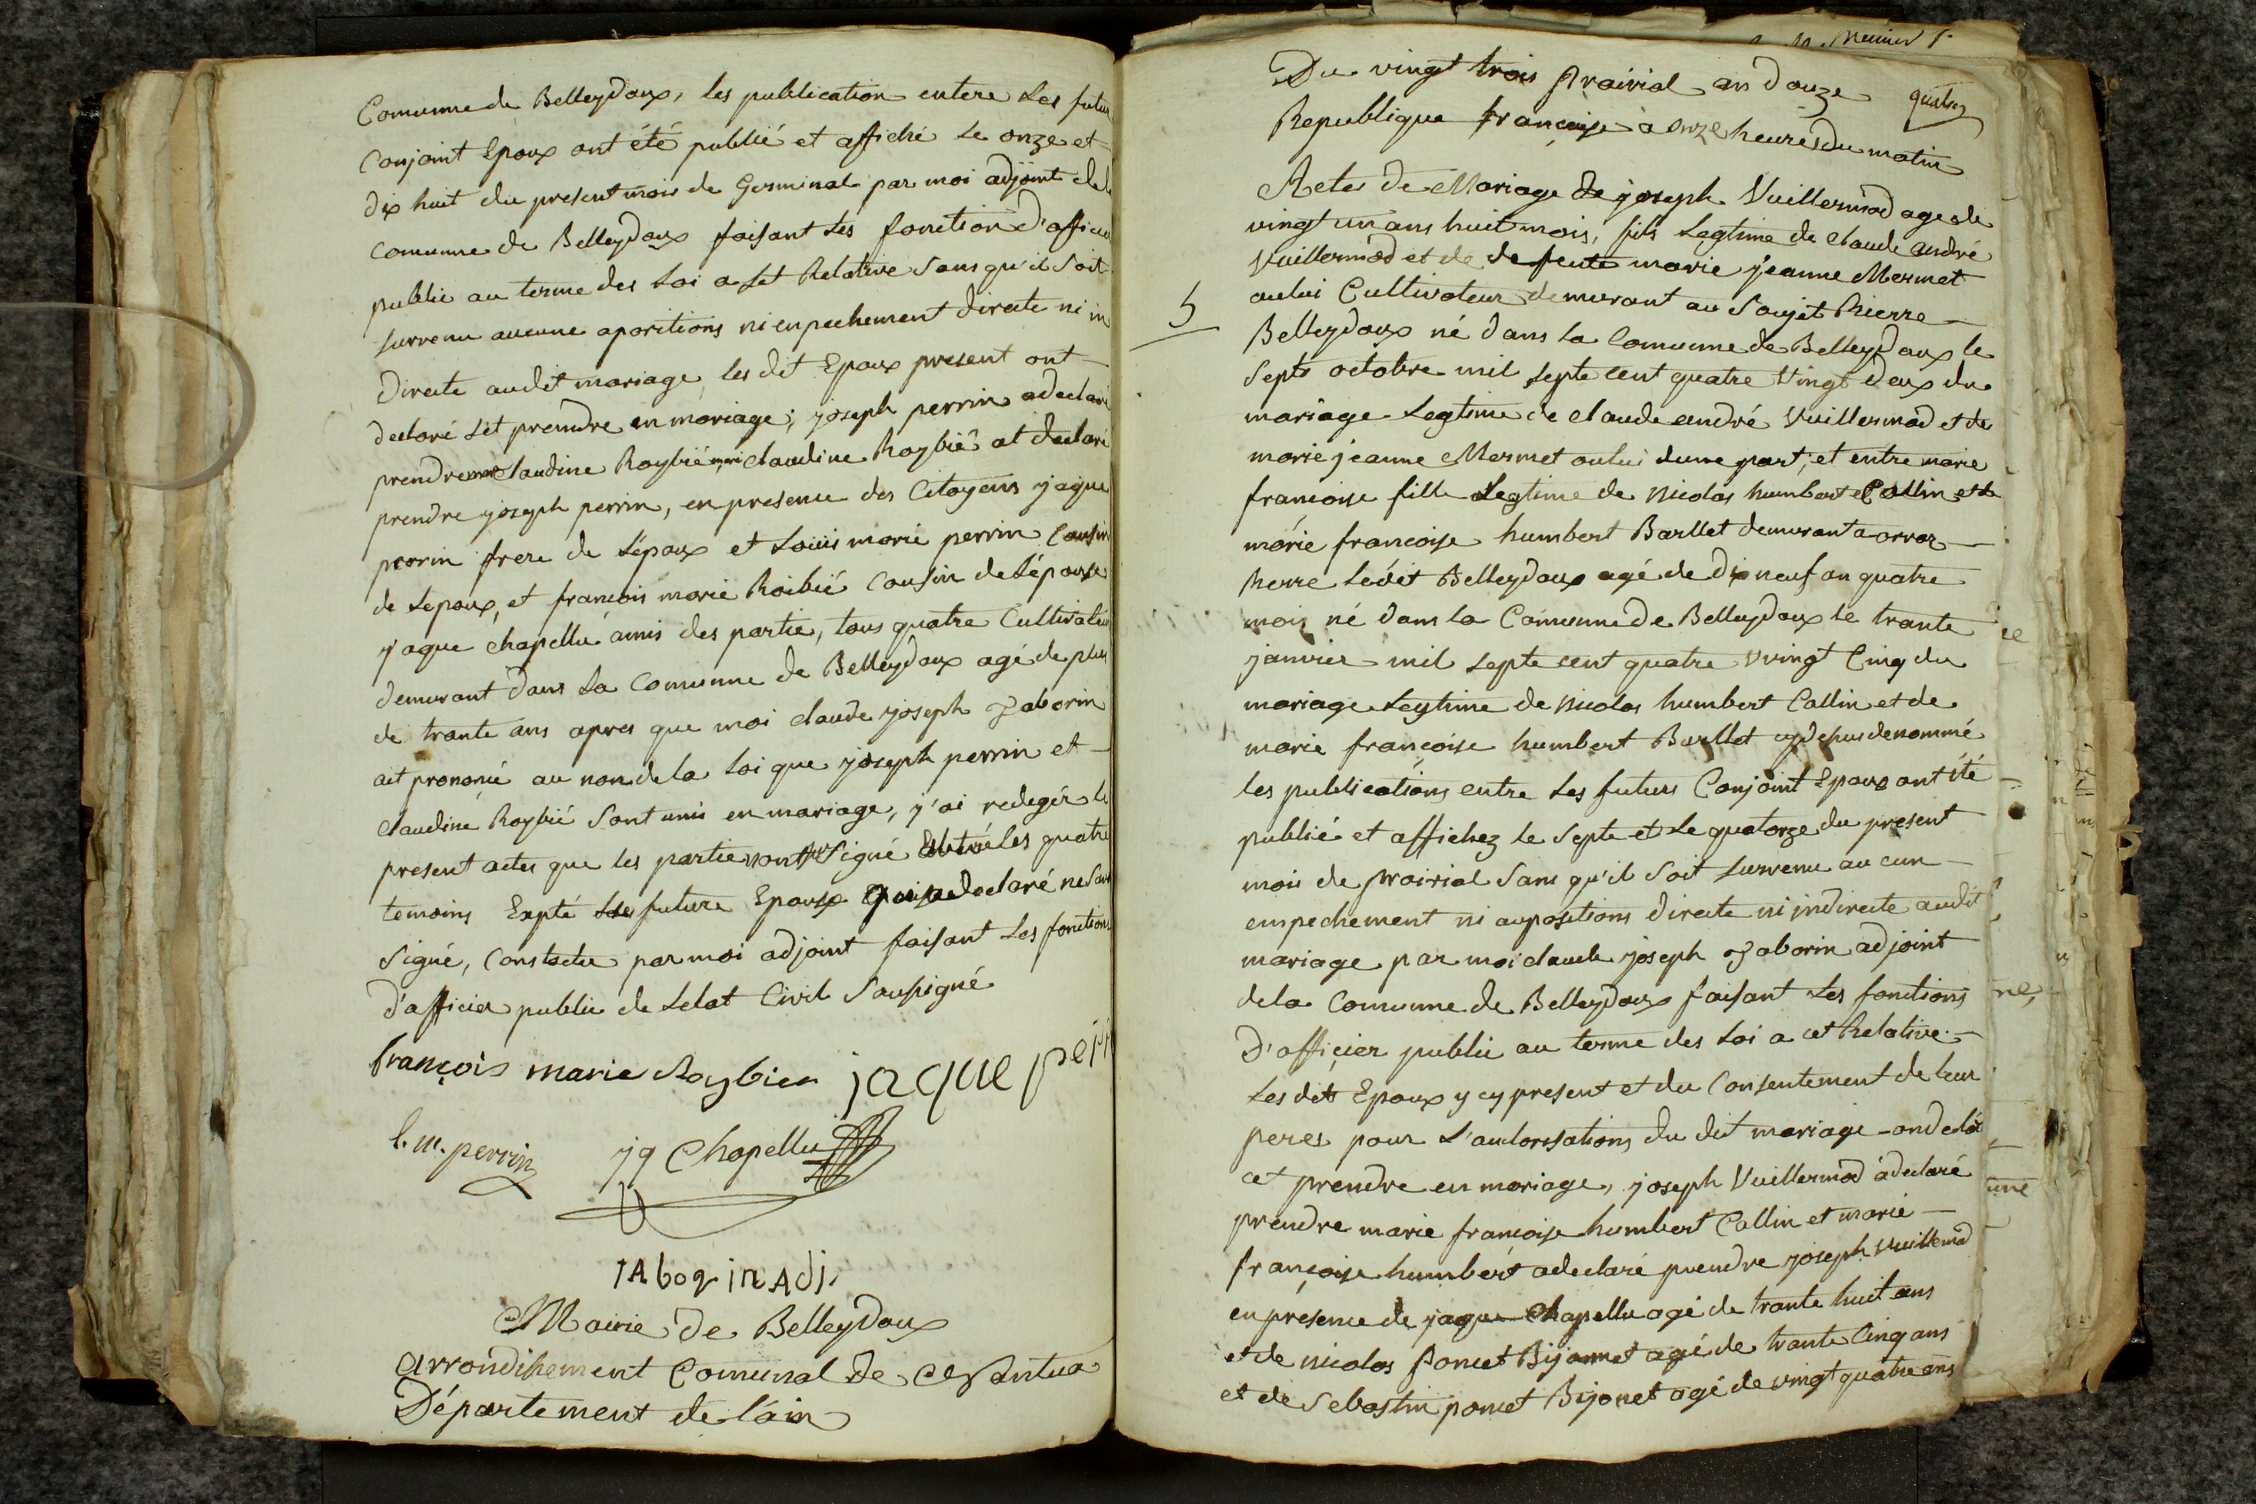 Comunne de Belleydoux, les publication entere Les futur
Conjoint Epoux ont été publié et affiché le onze et
dix huit du present mois de Germinal par moi adjoint de la
comunne de Belleydoux faisant Les fonction d'officier
public au terme des Loi a set Relative sans qu'il soit
survenu aucune opositions ni enpechement directe ni in
directe audit mariage, les dit Epoux present ont
declaré set prendre en mariage; joseph perrin a declaré
prendre Claudine Roybié, claudine Roybié at declaré
prendre joseph perrin, en presence des Citoyens jaque
perrin frere de L'époux et Louis marie perrin Cousin
de Lepoux, et francois marie Roibié Cousin de L'épouse
jaque chapellu amis des partie, tous quatre Cultivateu
demurant dans La Comunne de Belleydoux agé de plus
de trante ans apres que moi claude joseph Jaborin
ait prononcé au non de la Loi que joseph perrin et
claudine Roybié sont unis en mariage, j'ai redegér le
present actes que les partie ont signé les quatre
temoins Expté future Epouse declaré ne
signé, Constater par moi adjoint faisant Les fonctions
d'officier public de Letat Civil soussigné
françois marie Roybier jaque
l. m. perrin jq Chapellu
jAborin Adj.
Mairie de Belleydoux
Arrondissement Comunal de Nantua
Département de l'ain
Meunier
Du vingt trois Prairial an douze
Republique françoise a onze heures du matin
Actes de Mariage de joseph Vuillermod age de
vingt un ans huit mois, fils Legtime de claude andré
Vuillermod et de defeute marie jeanne Mermet
oului Cultivateur demurant au Soujet Rierre
5
Belleydoux né dans la Comunne de Belleydoux le
Septe octobre mil septe cent quatre Vingt deux du
mariage Legtime de claude andré Vuillermod et de
marie jeanne Mermet oului dune part; et entre marie
francoise fille Legtime de Nicolas humbert Collin et de
marie francoise humbert Barllet demurant a orvaz
Rierre Ledit Belleydoux agé de dix neuf an quatre
mois né dans la Comunne de Belleydoux le trante
janvier mil septe cent quatre vvingt Cinq du
mariage Legtime de Nicolas humbert Collin et de
marie françoise humbert Barllet cy desus denommé
les publications entre Les futurs Conjoint Epoux ont été
publié et affichez le Septe et Le quatorze du present
mois de prairial sans qu'il soit survenu au cun
empechement ni aupositions directe ni indirecte audit
mariage par moi claude joseph Jaborin adjoint
dela Comunne de Belleydoux faisant Les fonctions
D'officier public au terme des Loi a cet Relative
Les dits Epoux y cy present et du Consentement de leur
peres pour L'autorisations du dit mariage
cet prendre en mariage, joseph Vuillermod a declaré
prendre marie françoise humbert Collin et marie
françoise humbert a declaré prendre joseph Vuillermod
en presence de jaque Chapellu agé de trante huit ans
et de nicolas poncet Bijonnet agé de trante Cinq ans
et de Sebastin poncet Bijonet agé de vingt quatre ans